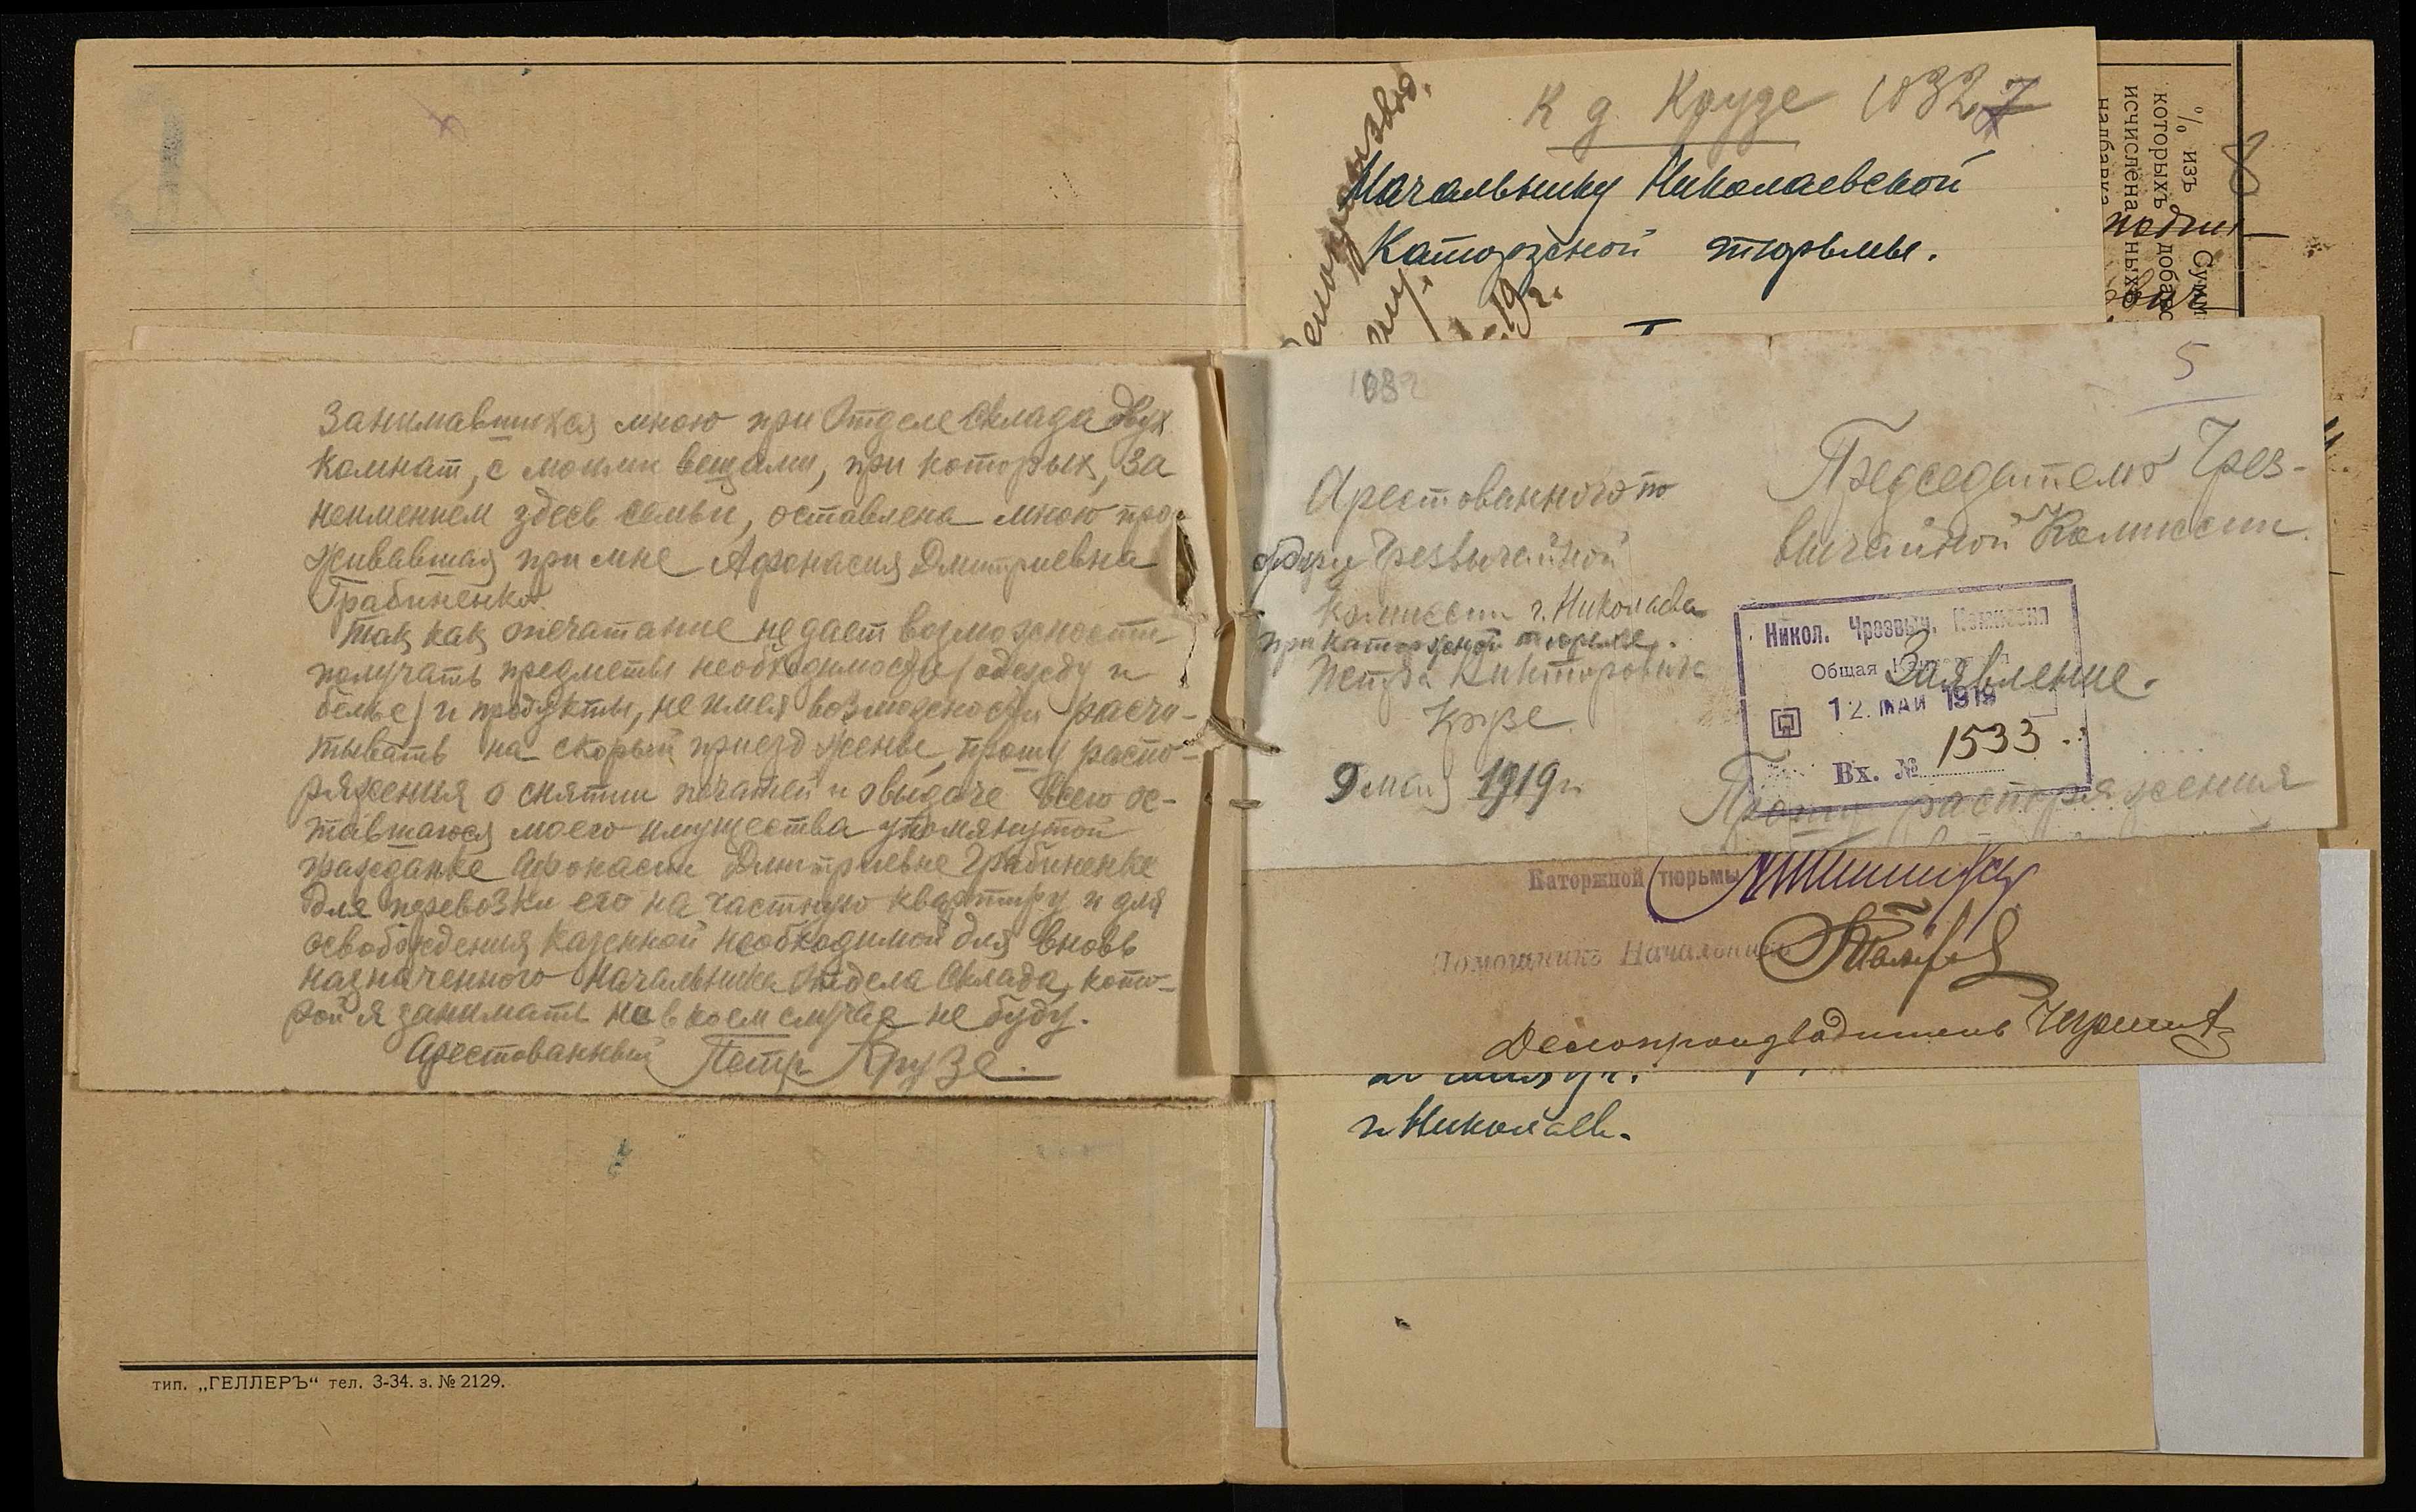 занимавшихся мною при Отделе Склада двух
комнат, с моими вещами, при которых, за
неимением здесь семьи, оставлена мною про-
живавшая при мне Афонасия Дмитриевна
Грабиненко.
Так как опечатание не дает возможности
получать предметы необходимости (одежду и
белье) и продукты, не имея возможности расчи-
тывать на скорый приезд жены, прошу распо-
ряжения о снятии печатей и о выдаче всего ос-
тавшагося моего имущества упомянутой
гражданке Афонасии Дмитриевне Грабиненке
для перевозки его на частную квартиру и для
освобождения казенной необходимой для вновь
назначенного Начальника Отдела Склада, кото-
рой я занимать не в коем случае не буду.
Арестованный Петр Крузе.
тип. „ГЕЛЛЕРЪ“ тел. 3-34. з. № 2129.
К д. Крузе 1032
Начальнику Николаевской
Каторжной тюрьмы.
19 г.
% изъ
которыхъ
исчислена
Сумм
добав
ныхъ
8
1032
5
Арестованного по
ордеру Чрезвычайной
Комиссии г. Николаева
при каторжной тюрьме,
Петра Викторовича
Крузе.
9 мая 1919 г.
Председателю Чрез-
вычайной Комиссии.
Никол. Чрезвыч. Комиссия
Общая
12 МАЙ 1919
Вх. № 1533.
Заявление.
Прошу распоряжения
Каторжной тюрьмы
Помощникъ Начальника
Делопроизводитель
г. Николаев.